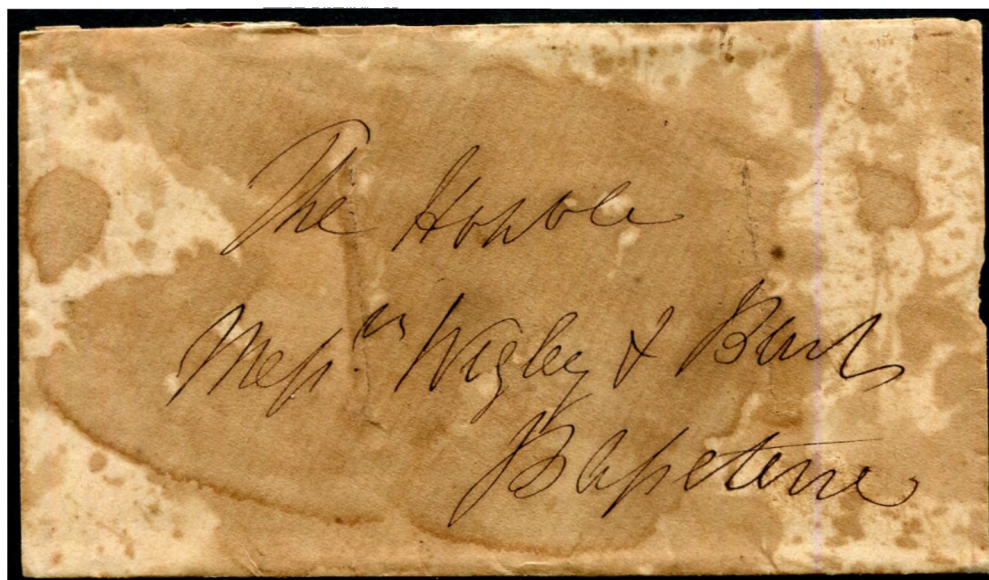 The Honble
Messrs. Wigley & Burt
Basseterre